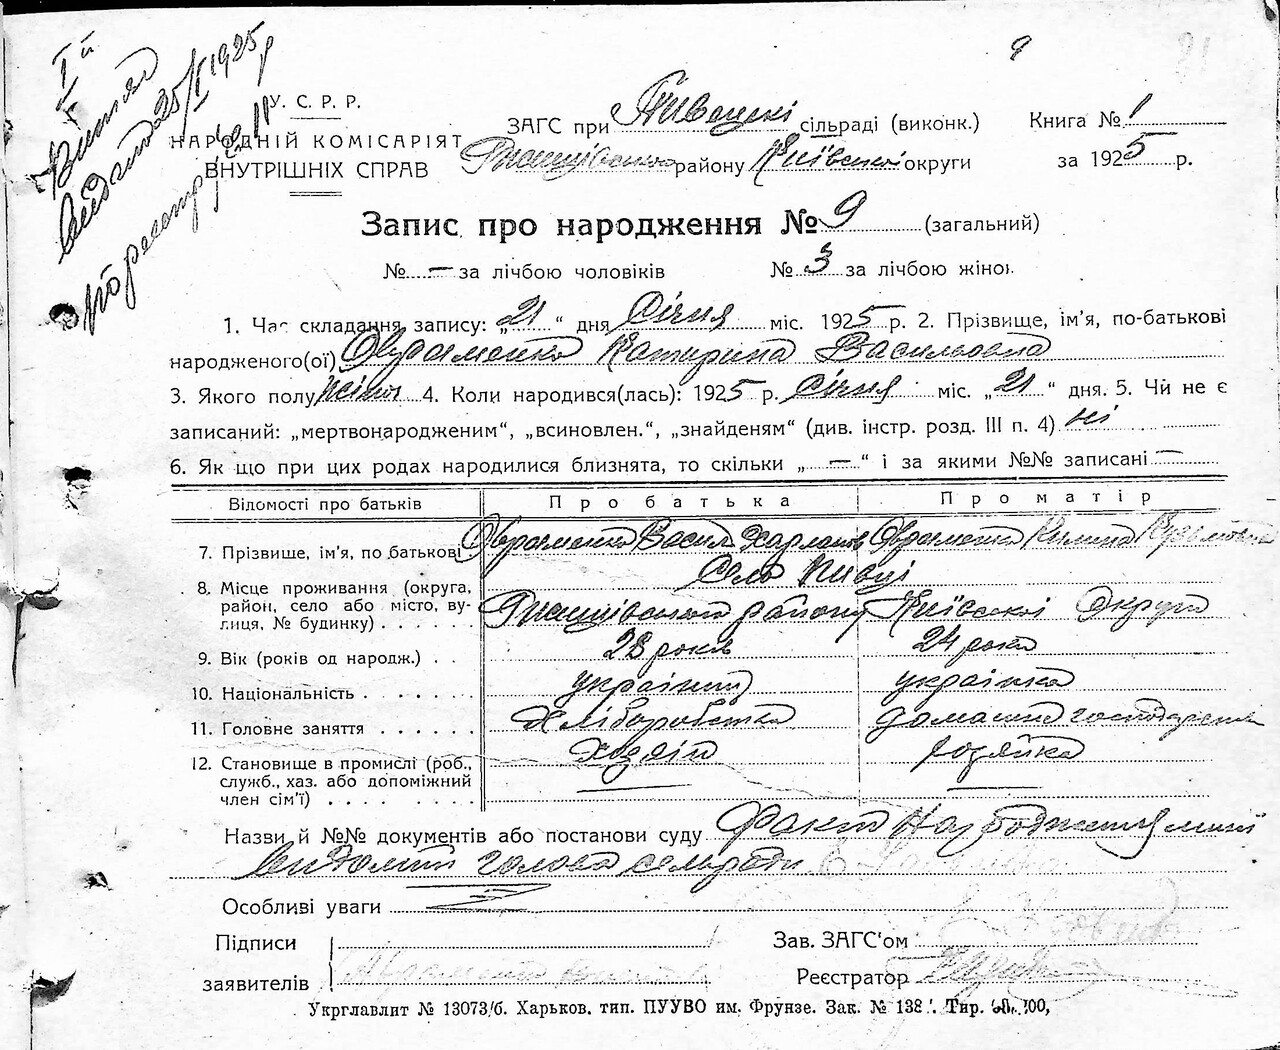 9
Витяг
видано 25/V 1925 р
У. С. Р. Р.
НАРОДНІЙ КОМІСАРІЯТ
ВНУТРІШНІХ СПРАВ
ЗАГС при Пивецькі сільраді (виконк.) Книга № 1
району Київської округи за 1925 р.
Запис про народження № 9 (загальний)
№ — за лічбою чоловіків № 3 за лічбою жінок
1. Час складання запису: „21“ дня Січня міс. 1925 р. 2. Прізвище, ім'я, по-батькові
народженого(ої) Овраменко Катирина Васильовна
3. Якого полу жіноч 4. Коли народився(лась): 1925 р. Січня міс. „21“ дня. 5. Чи не є
записаний: „мертвонародженим“, „всиновлен.“, „знайденям“ (див. інстр. розд. III п. 4) ні
6. Як що при цих родах народилися близнята, то скільки „—“ і за якими №№ записані —
Відомості про батьків Про батька Про матір
7. Прізвище, ім'я, по батькові Овраменко Васил Харланов Овраменко Килина Кузьмовна
Село Пивці
8. Місце проживання (округа,
район, село або місто, ву-
лиця, № будинку) Ржищівського району Київської Округи
9. Вік (років од народж.) 28 років 24 роки
10. Національність українец українка
11. Головне заняття Хліборобство домашнє господарення
12. Становище в промислі (роб.,
служб., хаз. або допоміжний
член сім'ї) Хозяїн хозяйка
Назви й №№ документів або постанови суду Факт Народження мині
видомий голова сельради
Особливі уваги
Підписи
заявителів
Зав. ЗАГС'ом
Реєстратор
Укрглавлит № 13073/б. Харьков. тип. ПУУВО им. Фрунзе. Зак. № 138 Тир.